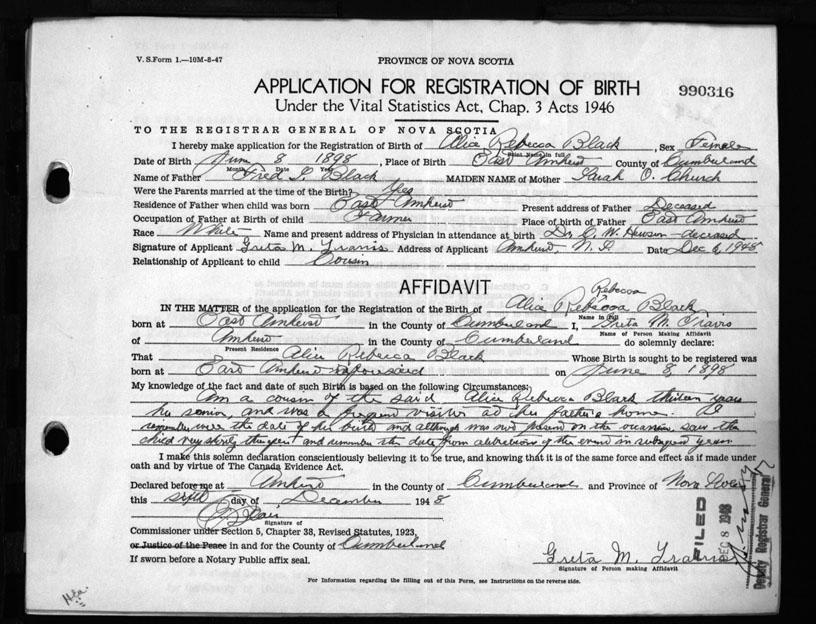 V. S. Form 1.—10M-8-47
PROVINCE OF NOVA SCOTIA
APPLICATION FOR REGISTRATION OF BIRTH
990316
Under the Vital Statistics Act, Chap. 3 Acts 1946
TO THE REGISTRAR GENERAL OF NOVA SCOTIA
I hereby make application for the Registration of Birth of Alice Rebecca Black, Sex Female
Print Name in full
Date of Birth June 8 1898, Place of Birth East Amherst County of Cumberland
Month Date Year
Name of Father Fred I. Black MAIDEN NAME of Mother Sarah O. Church
Were the Parents married at the time of the Birth? Yes
Residence of Father when child was born East Amherst Present address of Father Deceased
Occupation of Father at Birth of child Farmer Place of birth of Father East Amherst
Race White Name and present address of Physician in attendance at birth Dr. C. W. Hewson - deceased
Signature of Applicant Greta M. Travis Address of Applicant Amherst, N. S. Date Dec 6, 1948
Relationship of Applicant to child Cousin
AFFIDAVIT
Rebecca
IN THE MATTER of the application for the Registration of Birth of Alice Rebecca Black
Name in full
born at East Amherst in the County of Cumberland I, Greta M. Travis
Name of Person Making Affidavit
of Amherst in the County of Cumberland do solemnly declare:
Present Residence
That Alice Rebecca Black Whose Birth is sought to be registered was
born at East Amherst aforesaid on June 8, 1898
My knowledge of the fact and date of such Birth is based on the following Circumstances:
I am a cousin of the said Alice Rebecca Black thirteen years
her senior, and was a frequent visitor at her father's home. I
remember the date of her birth and although was not present on the occasion saw the
child very shortly and remember the date from celebrations of the event in subsequent years
I make this solemn declaration conscientiously believing it to be true, and knowing that it is of the same force and effect as if made under
oath and by virtue of The Canada Evidence Act.
Declared before me at Amherst in the County of Cumberland and Province of Nova Scotia
this sixth day of December 1948
Signature of
Commissioner under Section 5, Chapter 38, Revised Statutes, 1923,
or Justice of the Peace in and for the County of Cumberland
If sworn before a Notary Public affix seal.
Greta M. Travis
Signature of Person making Affidavit
FILED
DEC 8 1948
Deputy Registrar General
For Information regarding the filling out of this Form, see Instructions on the reverse side.